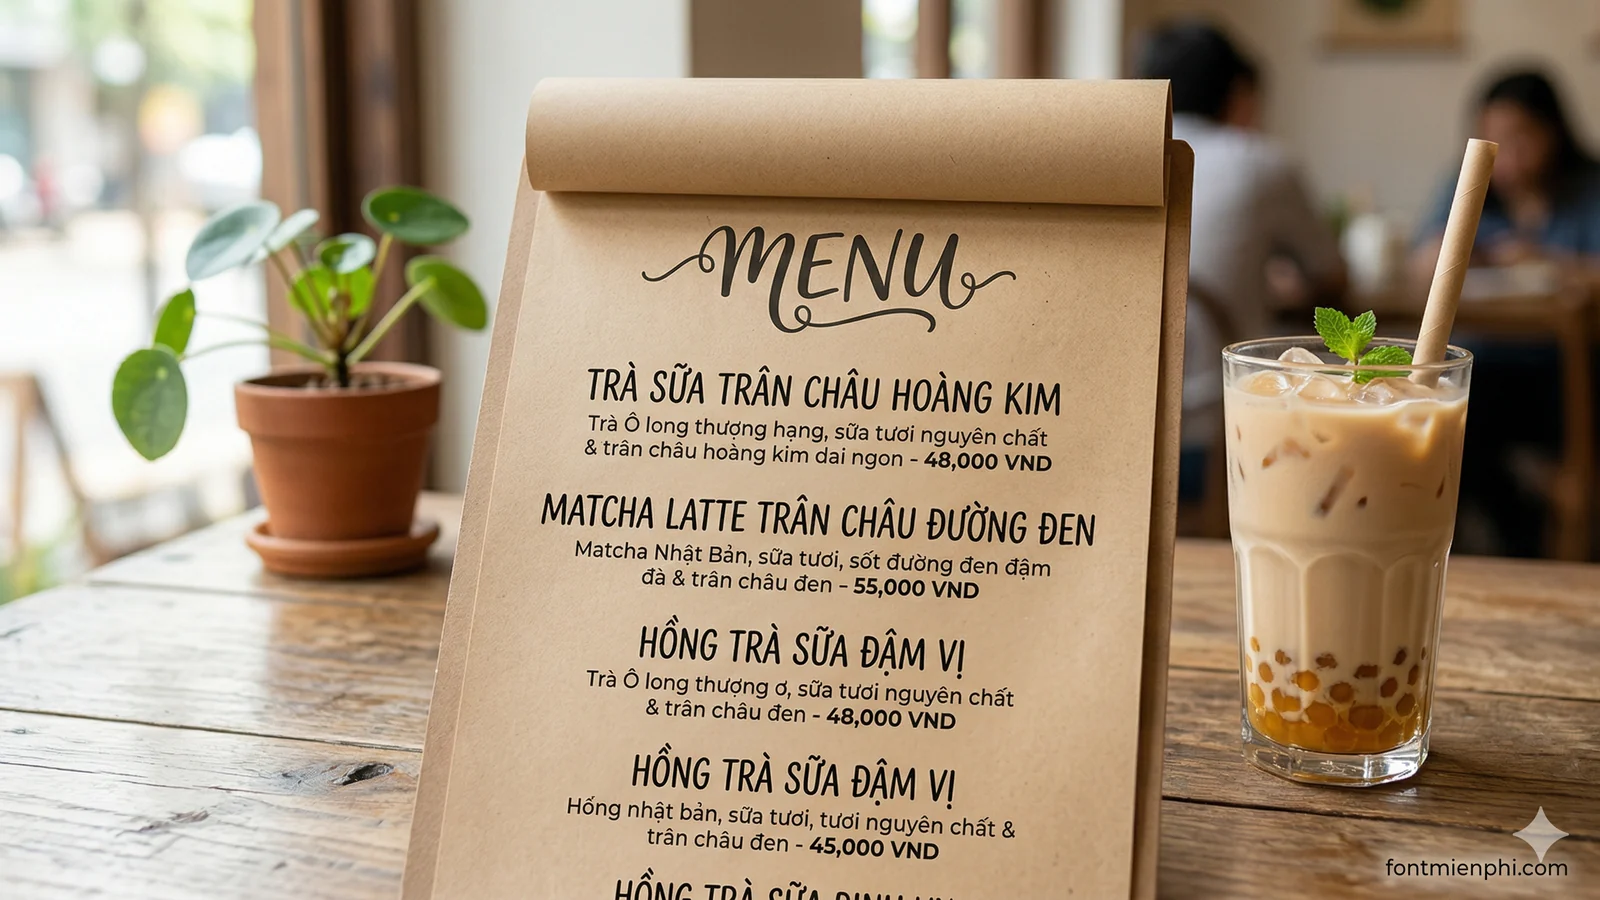 MENU
TRÀ SỮA TRÂN CHÂU HOÀNG KIM
Trà Ô long thượng hạng, sữa tươi nguyên chất
& trân châu hoàng kim dai ngon - 48,000 VND
MATCHA LATTE TRÂN CHÂU ĐƯỜNG ĐEN
Matcha Nhật Bản, sữa tươi, sốt đường đen đậm
đà & trân châu đen - 55,000 VND
HỒNG TRÀ SỮA ĐẬM VỊ
Trà Ô long thượng ơ, sữa tươi nguyên chất
& trân châu đen - 48,000 VND
HỒNG TRÀ SỮA ĐẬM VỊ
Hống nhật bản, sữa tươi, tươi nguyên chất &
trân châu đen - 45,000 VND
HỒNG TRÀ SỮA
fontmienphi.com